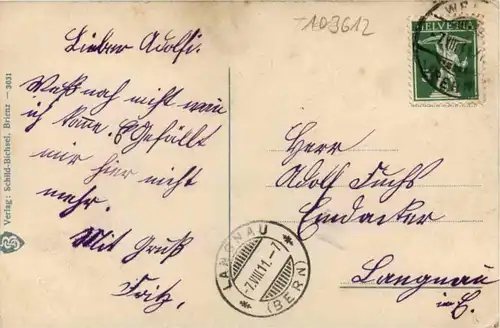 103612
Lieber Adolfi.
Weß noch nicht wen
ich kome. Gefällt
mir hier nicht
mehr.
Mit Gruß
Fritz,
Herr
Adolf Fuchs
Emdacker
Langnau
i. E.
HELVETIA
LANGNAU
-7.VIII.11.-7
(BERN)
Verlag: Schild-Bichsel, Brienz — 3631